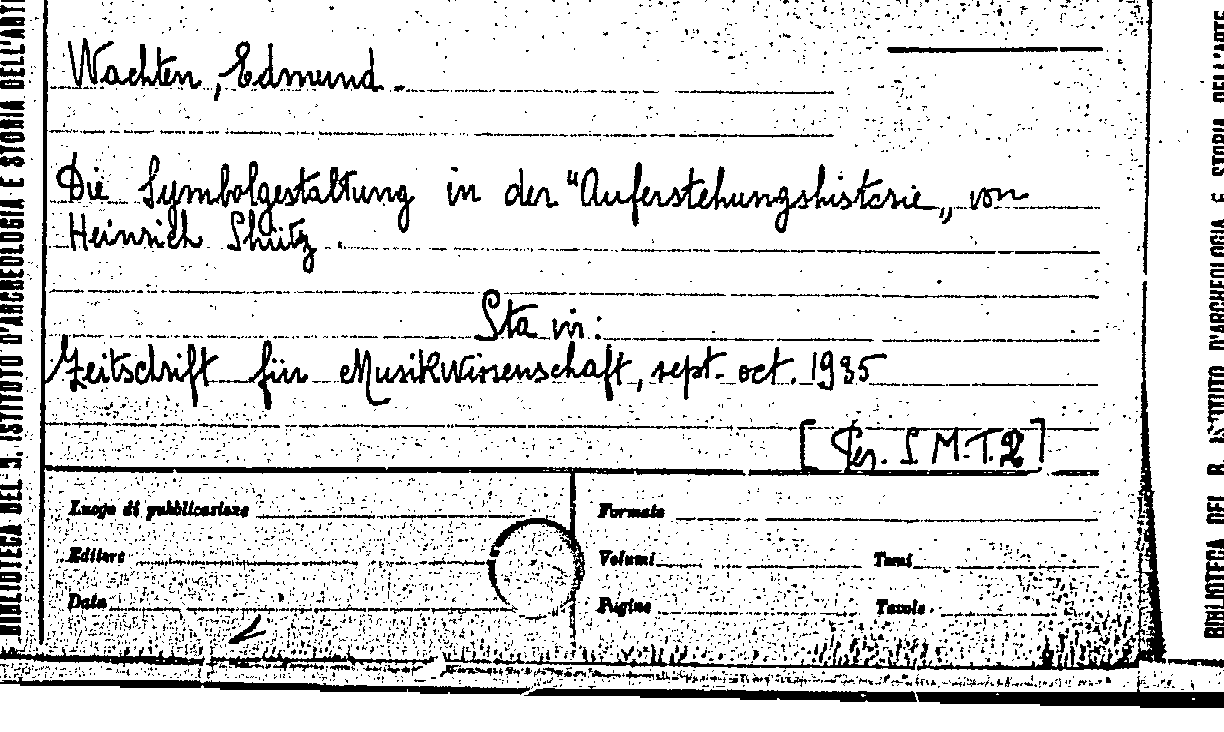 Wachten, Edmund.
Die Symbolgestaltung in der "Auferstehungshistorie„ von
Heinrich Shütz.
Sta in:
Zeitschrift für Musikwissenschaft, sept. oct. 1935
[Per. S. M.T.2]
Luogo di pubblicazione
Formato
Editore
Volumi
Tomi
Data
Pagine
Tavole
BIBLIOTECA DEL R. ISTITUTO D'ARCHEOLOGIA E STORIA DELL'ARTE
BIBLIOTECA DEL R. ISTITUTO D'ARCHEOLOGIA E STORIA DELL'ARTE